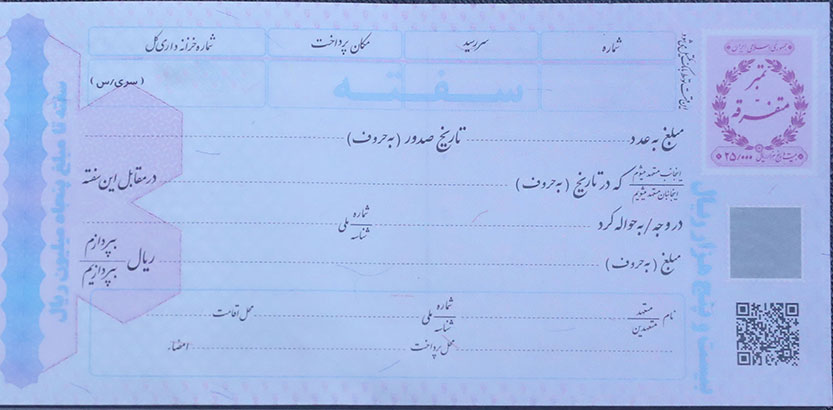 شماره
سررسید
مکان پرداخت
شماره خزانه داری کل
سفته
(سری/س)
مبلغ به عدد
تاریخ صدور (به حروف)
اینجانب متعهد میشوم
اینجانبان متعهد میشویم
که در تاریخ (به حروف)
در مقابل این سفته
در وجه/به حواله کرد
شماره
شناسه
ملی
مبلغ (به حروف)
ریال
بپردازم
بپردازیم
نام
متعهد
متعهدین
شماره
شناسه
ملی
محل اقامت
محل پرداخت
امضاء
جمهوری اسلامی ایران
تمبر
متفرقه
۲۵/۰۰۰
بیست و پنج هزار ریال
سفته تا مبلغ پنجاه میلیون ریال